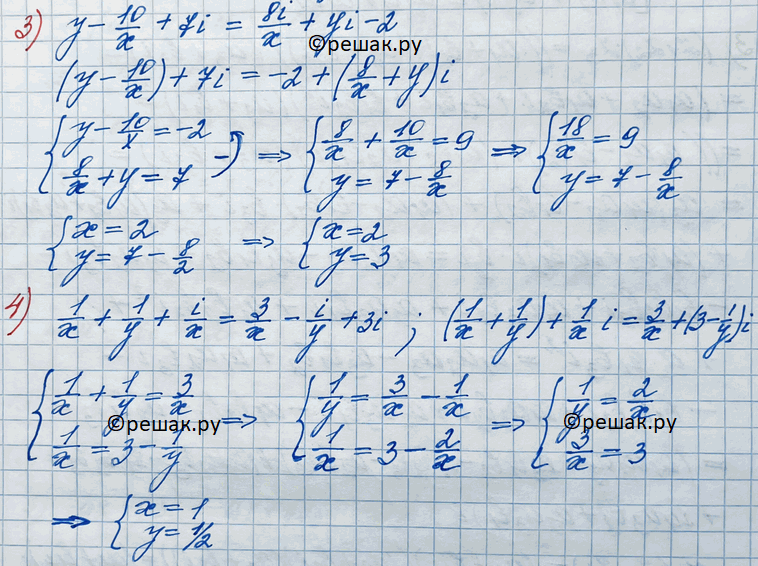 3) y - 10/x + 7i = 8i/x + yi - 2
©решак.ру
(y - 10/x) + 7i = -2 + (8/x + y)i
{ y - 10/x = -2 ; 8/x + y = 7 -) ⇒ { 8/x + 10/x = 9 ; y = 7 - 8/x ⇒ { 18/x = 9 ; y = 7 - 8/x
{ x = 2 ; y = 7 - 8/2 ⇒ { x = 2 ; y = 3
4) 1/x + 1/y + i/x = 3/x - i/y + 3i ; (1/x + 1/y) + 1/x i = 3/x + (3 - 1/y)i
{ 1/x + 1/y = 3/x ; 1/x = 3 - 1/y ⇒ { 1/y = 3/x - 1/x ; 1/x = 3 - 2/x ⇒ { 1/y = 2/x ; 3/x = 3
©решак.ру ©решак.ру
⇒ { x = 1 ; y = 1/2